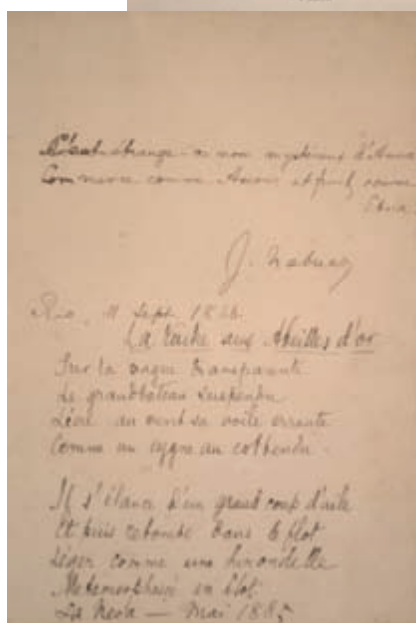 étrange ce nom mystérieux d'Anna
Commence comme Amour et finit comme
J. Nabuco
Rio, 11 Sept. 18
La ruche aux Abeilles d'or
Sur la vague transparente
Le grand bateau suspendu
au vent sa voile errante
Comme un cygne au col tendu.
Il s'élance d'un grand coup d'aile
Et puis retombe dans le flot
Léger comme une hirondelle
Metamorphosée en
La — Mai 1885